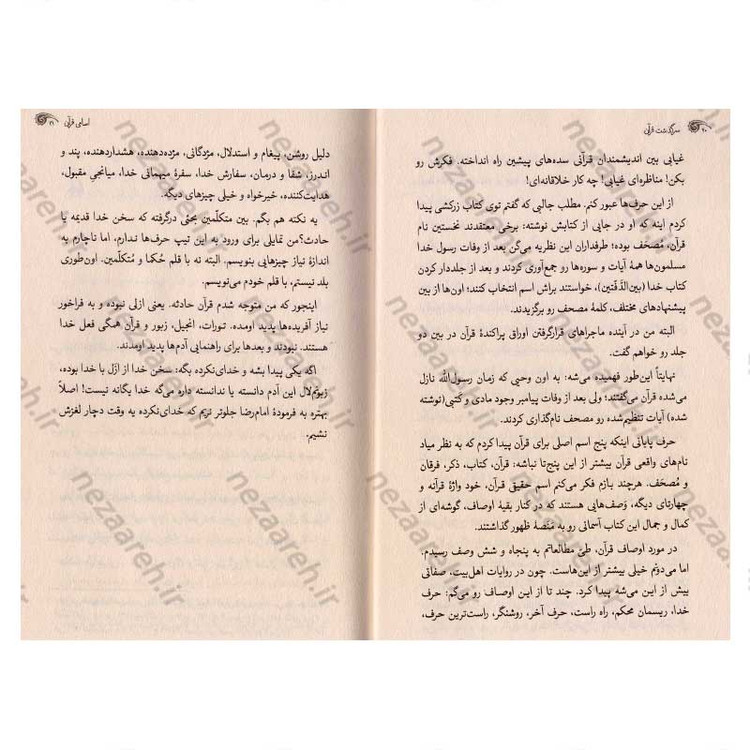 سرگذشت قرآن ۲۰
غیابی بین اندیشمندان قرآنی سده‌های پیشین راه انداخته. فکرش رو
بکن! مناظره‌ای غیابی! چه کار خلاقانه‌ای!
از این حرف‌ها عبور کنم. مطلب جالبی که گفتم توی کتاب زرکشی پیدا
کردم اینه که او در جایی از کتابش نوشته: برخی معتقدند نخستین نام
قرآن، مُصحَف بوده؛ طرفداران این نظریه می‌گن بعد از وفات رسول خدا
مسلمون‌ها همهٔ آیات و سوره‌ها رو جمع‌آوری کردند و بعد از جلددار کردن
کتاب خدا (بین‌الدَفّتین)، خواستند براش اسم انتخاب کنند؛ اون‌ها از بین
پیشنهادهای مختلف، کلمهٔ مصحف رو برگزیدند.
البته من در آینده ماجراهای قرارگرفتن اوراق پراکندهٔ قرآن در بین دو
جلد رو خواهم گفت.
نهایتاً این‌طور فهمیده می‌شه: به اون وحیی که زمان رسول‌الله نازل
می‌شده قرآن می‌گفتند؛ ولی بعد از وفات پیامبر وجود مادی و کَتبی(نوشته
شده) آیات تنظیم‌شده رو مصحف نام‌گذاری کردند.
حرف پایانی اینکه پنج اسم اصلی برای قرآن پیدا کردم که به نظر میاد
نام‌های واقعی قرآن بیشتر از این پنج‌تا نباشه: قرآن، کتاب، ذکر، فرقان
و مُصحَف. هرچند بازم فکر می‌کنم اسم حقیقی قرآن، خود واژهٔ قرآنه و
چهارتای دیگه، وَصف‌هایی هستند که در کنار بقیهٔ اوصاف، گوشه‌ای از
کمال و جمال این کتاب آسمانی رو به مَنَصّه ظهور گذاشتند.
در مورد اوصاف قرآن، طیّ مطالعاتم به پنجاه و شش وصف رسیدم.
اما می‌دونم خیلی بیشتر از این‌هاست. چون در روایات اهل‌بیت، صفاتی
بیش از این می‌شه پیدا کرد. چند تا از این اوصاف رو می‌گم: حرف
خدا، ریسمان محکم، راه راست، حرف آخر، روشنگر، راست‌ترین حرف،
اسامی قرآن ۲۱
دلیل روشن، پیغام و استدلال، مژدگانی، مژده‌دهنده، هشداردهنده، پند و
اندرز، شفا و درمان، سفارش خدا، سفرهٔ میهمانی خدا، میانجیِ مقبول،
هدایت‌کننده، خیرخواه و خیلی چیزهای دیگه.
یه نکته هم بگم. بین متکلّمین بحثی درگرفته که سخن خدا قدیمه یا
حادث؟من تمایلی برای ورود به این تیپ حرف‌ها ندارم، اما ناچارم به
اندازهٔ نیاز چیزهایی بنویسم. البته نه با قلم حُکما و مُتکلّمین. اون‌طوری
بلد نیستم، با قلم خودم می‌نویسم.
اینجور که من متوجه شدم قرآن حادثه. یعنی ازلی نبوده و به فراخور
نیاز آفریده‌ها پدید اومده. تورات، انجیل، زبور و قرآن همگی فعل خدا
هستند. نبودند و بعدها برای راهنمایی آدم‌ها پدید اومدند.
اگه یکی پیدا بشه و خدای‌نکرده بگه: سخن خدا از ازَل با خدا بوده،
زبونم‌لال این آدم دانسته یا ندانسته داره می‌گه خدا یگانه نیست! اصلاً
بهتره به فرمودهٔ امام‌رضا جلوتر نریم که خدای‌نکرده یه وقت دچار لغزش
نشیم.
nezaareh.ir